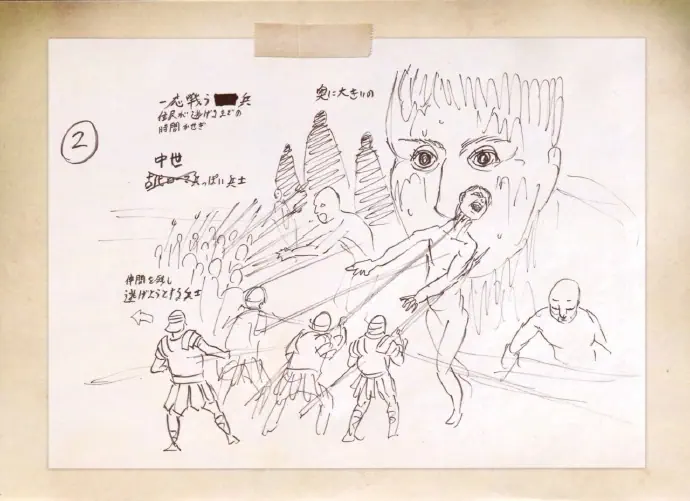 2
一応戦う 兵
住民が逃げるまでの
時間かせぎ
奥に大きいの
中世
っぽい兵士
仲間を残し
逃げようとする兵士